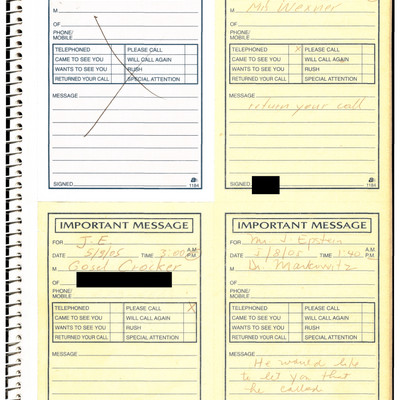 M
OF
PHONE/
MOBILE
TELEPHONED PLEASE CALL
CAME TO SEE YOU WILL CALL AGAIN
WANTS TO SEE YOU RUSH
RETURNED YOUR CALL SPECIAL ATTENTION
MESSAGE
SIGNED
1184
M Mr. Wexner
OF
PHONE/
MOBILE
TELEPHONED X PLEASE CALL
CAME TO SEE YOU WILL CALL AGAIN
WANTS TO SEE YOU RUSH
RETURNED YOUR CALL SPECIAL ATTENTION
MESSAGE
return your call
SIGNED
1184
IMPORTANT MESSAGE
FOR J.E.
DATE 5/9/05 TIME 3:00 A.M. P.M.
M Crocker
OF
PHONE/
MOBILE
TELEPHONED PLEASE CALL X
CAME TO SEE YOU WILL CALL AGAIN
WANTS TO SEE YOU RUSH
RETURNED YOUR CALL SPECIAL ATTENTION
MESSAGE
IMPORTANT MESSAGE
FOR Mr. J. Epstein
DATE 5/8/05 TIME 1:40 A.M. P.M.
M Dr. Markowitz
OF
PHONE/
MOBILE
TELEPHONED PLEASE CALL
CAME TO SEE YOU WILL CALL AGAIN
WANTS TO SEE YOU RUSH
RETURNED YOUR CALL SPECIAL ATTENTION
MESSAGE
He would like
to let you that
he called